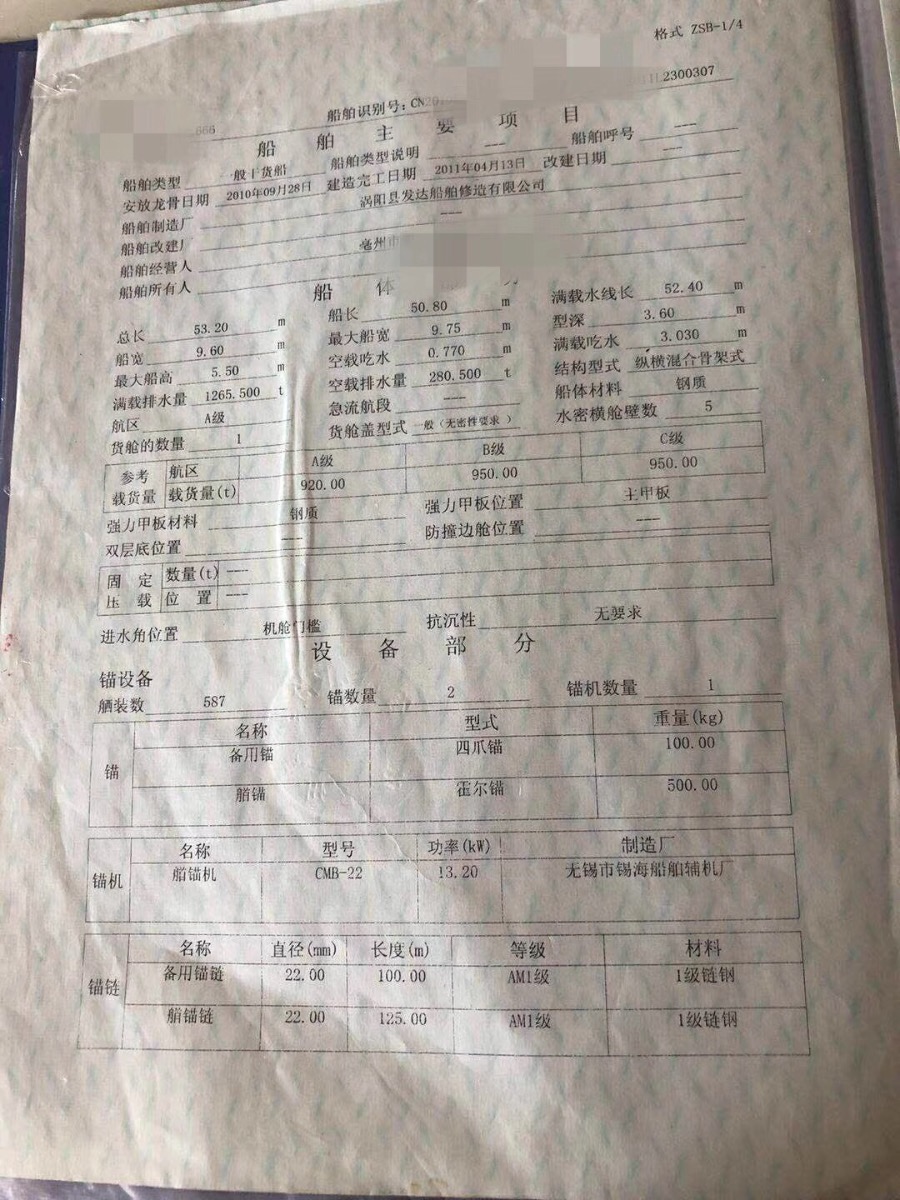 格式 ZSB-1/4
666 船舶识别号：CN20 2300307
船舶主要项目
船舶类型 一般干货船 船舶类型说明 --- 船舶呼号 ---
安放龙骨日期 2010年09月28日 建造完工日期 2011年04月13日 改建日期 ---
船舶制造厂 涡阳县发达船舶修造有限公司
船舶改建厂 ---
船舶经营人 亳州市
船舶所有人
船体
总长 53.20 m 船长 50.80 m 满载水线长 52.40 m
船宽 9.60 m 最大船宽 9.75 m 型深 3.60 m
最大船高 5.50 m 空载吃水 0.770 m 满载吃水 3.030 m
满载排水量 1265.500 t 空载排水量 280.500 t 结构型式 纵横混合骨架式
航区 A级 急流航段 --- 船体材料 钢质
货舱的数量 1 货舱盖型式 一般（无密性要求） 水密横舱壁数 5
参考 航区 A级 B级 C级
载货量 载货量(t) 920.00 950.00 950.00
强力甲板材料 钢质 强力甲板位置 主甲板
双层底位置 --- 防撞边舱位置 ---
固定 数量(t) ---
压载 位置 ---
进水角位置 机舱门槛 抗沉性 无要求
设备部分
锚设备
舾装数 587 锚数量 2 锚机数量 1
锚 名称 型式 重量(kg)
备用锚 四爪锚 100.00
艏锚 霍尔锚 500.00
锚机 名称 型号 功率(kW) 制造厂
艏锚机 CMB-22 13.20 无锡市锡海船舶辅机厂
锚链 名称 直径(mm) 长度(m) 等级 材料
备用锚链 22.00 100.00 AM1级 1级链钢
艏锚链 22.00 125.00 AM1级 1级链钢